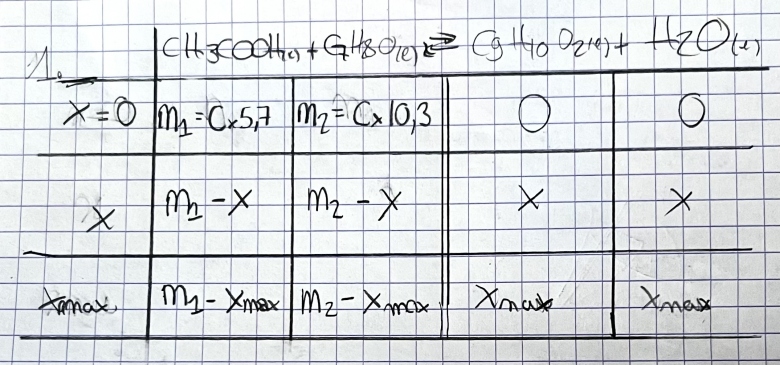 1.
CH3COOH(l) + C7H8O(l) ⇌ C9H10O2(l) + H2O(l)
x=0 n1=C×5,7 n2=C×10,3 0 0
x n1-x n2-x x x
xmax n1-xmax n2-xmax xmax xmax